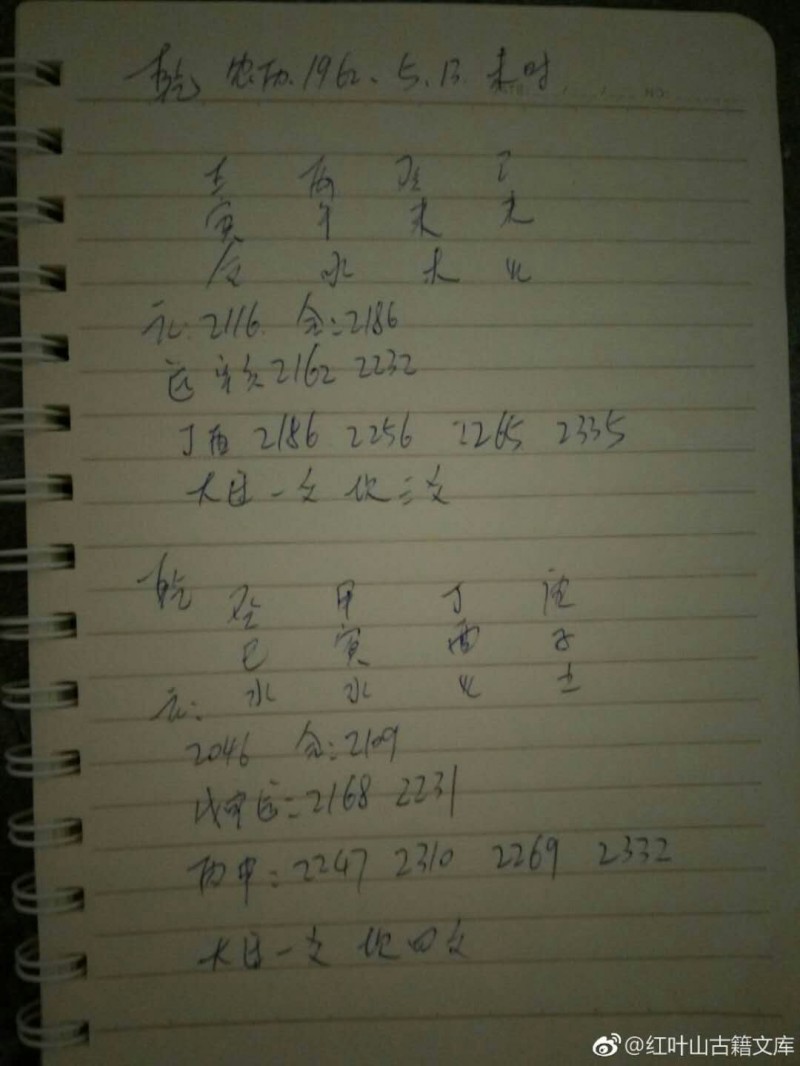 乾 农历.1962.5.13.未时
壬 丙 癸 己
寅 午 未 未
金 水 木 火
元:2116. 会:2186
运 辛亥 2162 2232
丁酉 2186 2256 2265 2335
大运一爻
乾 癸 甲 丁 庚
巳 寅 酉 子
水 水 火 土
元:
2046 会:2109
戊申运:2168 2231
丙申:2247 2310 2269 2332
大运一爻
@红叶山古籍文库